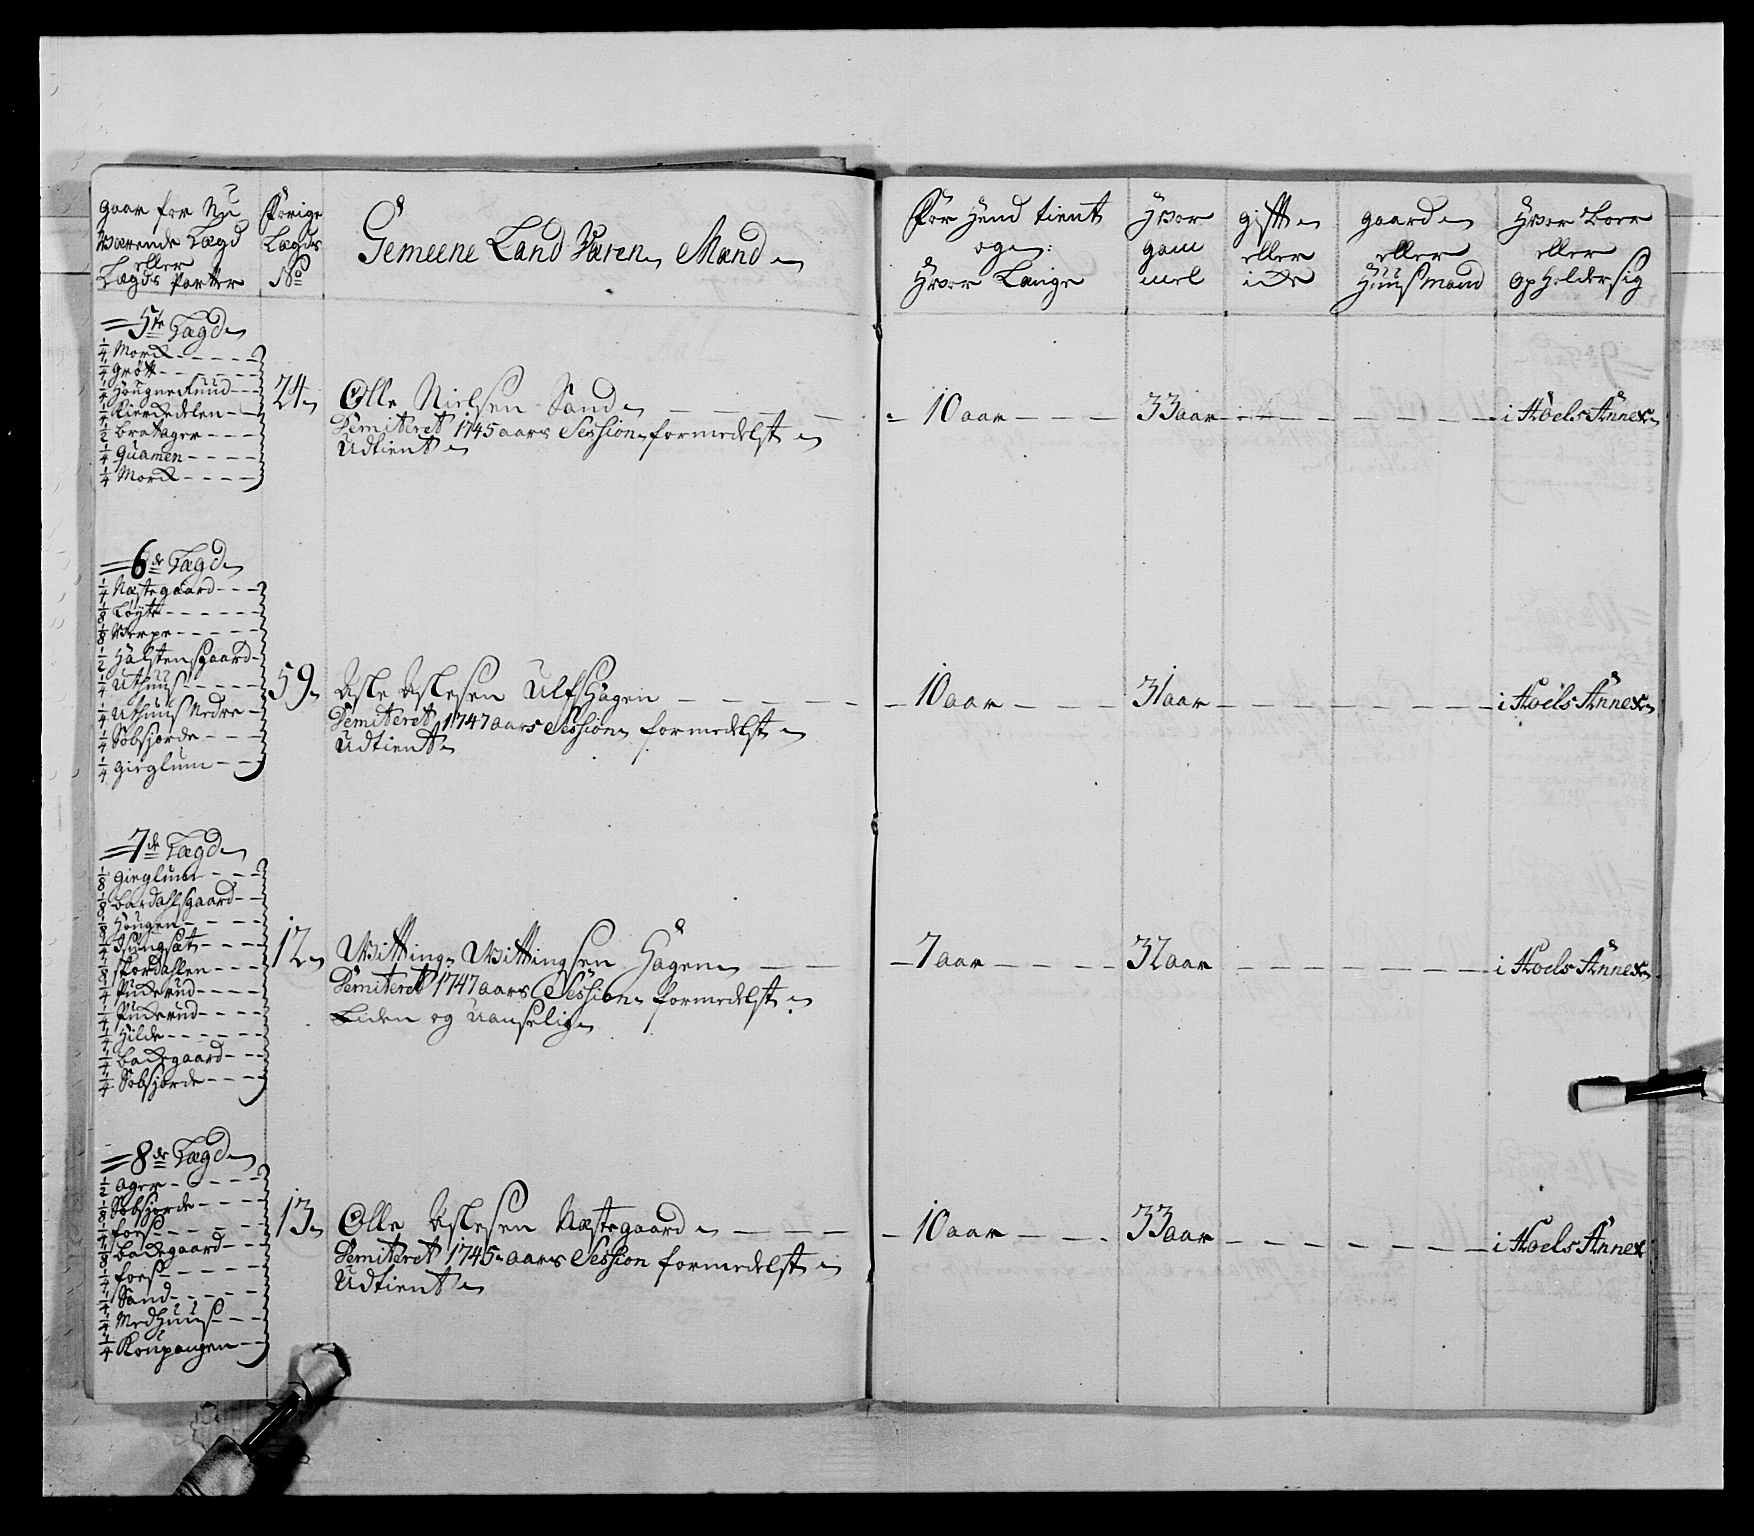 gaar for Nu
Værende Lægd
eller
Lægds Parter
Forige
Lægds
No
Gemeene Land Væren Mand
Før Hend tient
og
Hvor Længe
Hvor
gam
mel
gift
eller
icke
gaard
eller
Huusmand
Hvor Boer
eller
Opholder sig
5te Lægd
1/4 Morck
1/4 Grøtt
1/4 Hougnerud
1/4 Kierdedelen
1/2 Bratager
1/4 Quamen
1/4 Morck
24 Olle Nielsen Sand
Demiteret 1745 aars Session formedelst
Udtient
10 aar 33 aar i Hoels Annex
6de Lægd
1/4 Næstegaard
1/8 Løyte
1/8 Werpe
1/2 Halstensgaard
1/4 Uthuus
1/4 Uthuus Nedre
1/4 Sobsjorde
1/4 Gieglum
59 Asle Aslesen Ulfshagen
Demiteret 1747 aars Session formedelst
Udtient
10 aar 31 aar i Hoels Annex
7de Lægd
1/8 Gieglum
1/8 Bardahlsgaard
1/8 Hougen
1/4 Isungset
1/8 Fordahlen
1/4 Ruderud
1/4 Ruderud
1/4 Hilde
1/4 Backegaard
1/4 Sobsjorde
12 Witting Wittingsen Hagen
Demiteret 1747 aars Session formedelst
Liden og Uanselig
7 aar 32 aar i Hoels Annex
8de Lægd
1/2 Ager
1/8 Sobsjorde
1/4 Fors
1/8 Backegaard
1/4 Fors
1/4 Sand
1/4 Medhuus
1/4 Koupangen
13 Olle Aslesen Næstegaard
Demiteret 1745 aars Session formedelst
Udtient
10 aar 33 aar i Hoels Annex